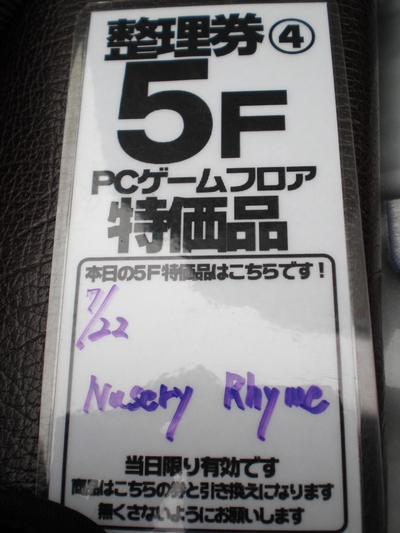 整理券④
5F
PCゲームフロア
特価品
本日の5F特価品はこちらです！
7/22
Nusery Rhyme
当日限り有効です
商品はこちらの券と引き換えになります
無くさないようにお願いします